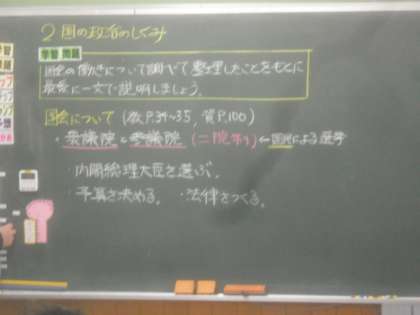 2 国の政治のしくみ
学習問題
国会の働きについて調べて整理したことをもとに
最後に一文で説明しましょう。
国会について (教P.34~35, 資P.100)
・衆議院と参議院 (二院制) ←国民による選挙
・内閣総理大臣を選ぶ。
・予算を決める。 ・法律をつくる。